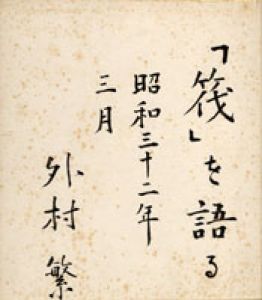 「筏」を語る
昭和三十二年
三月
外村繁